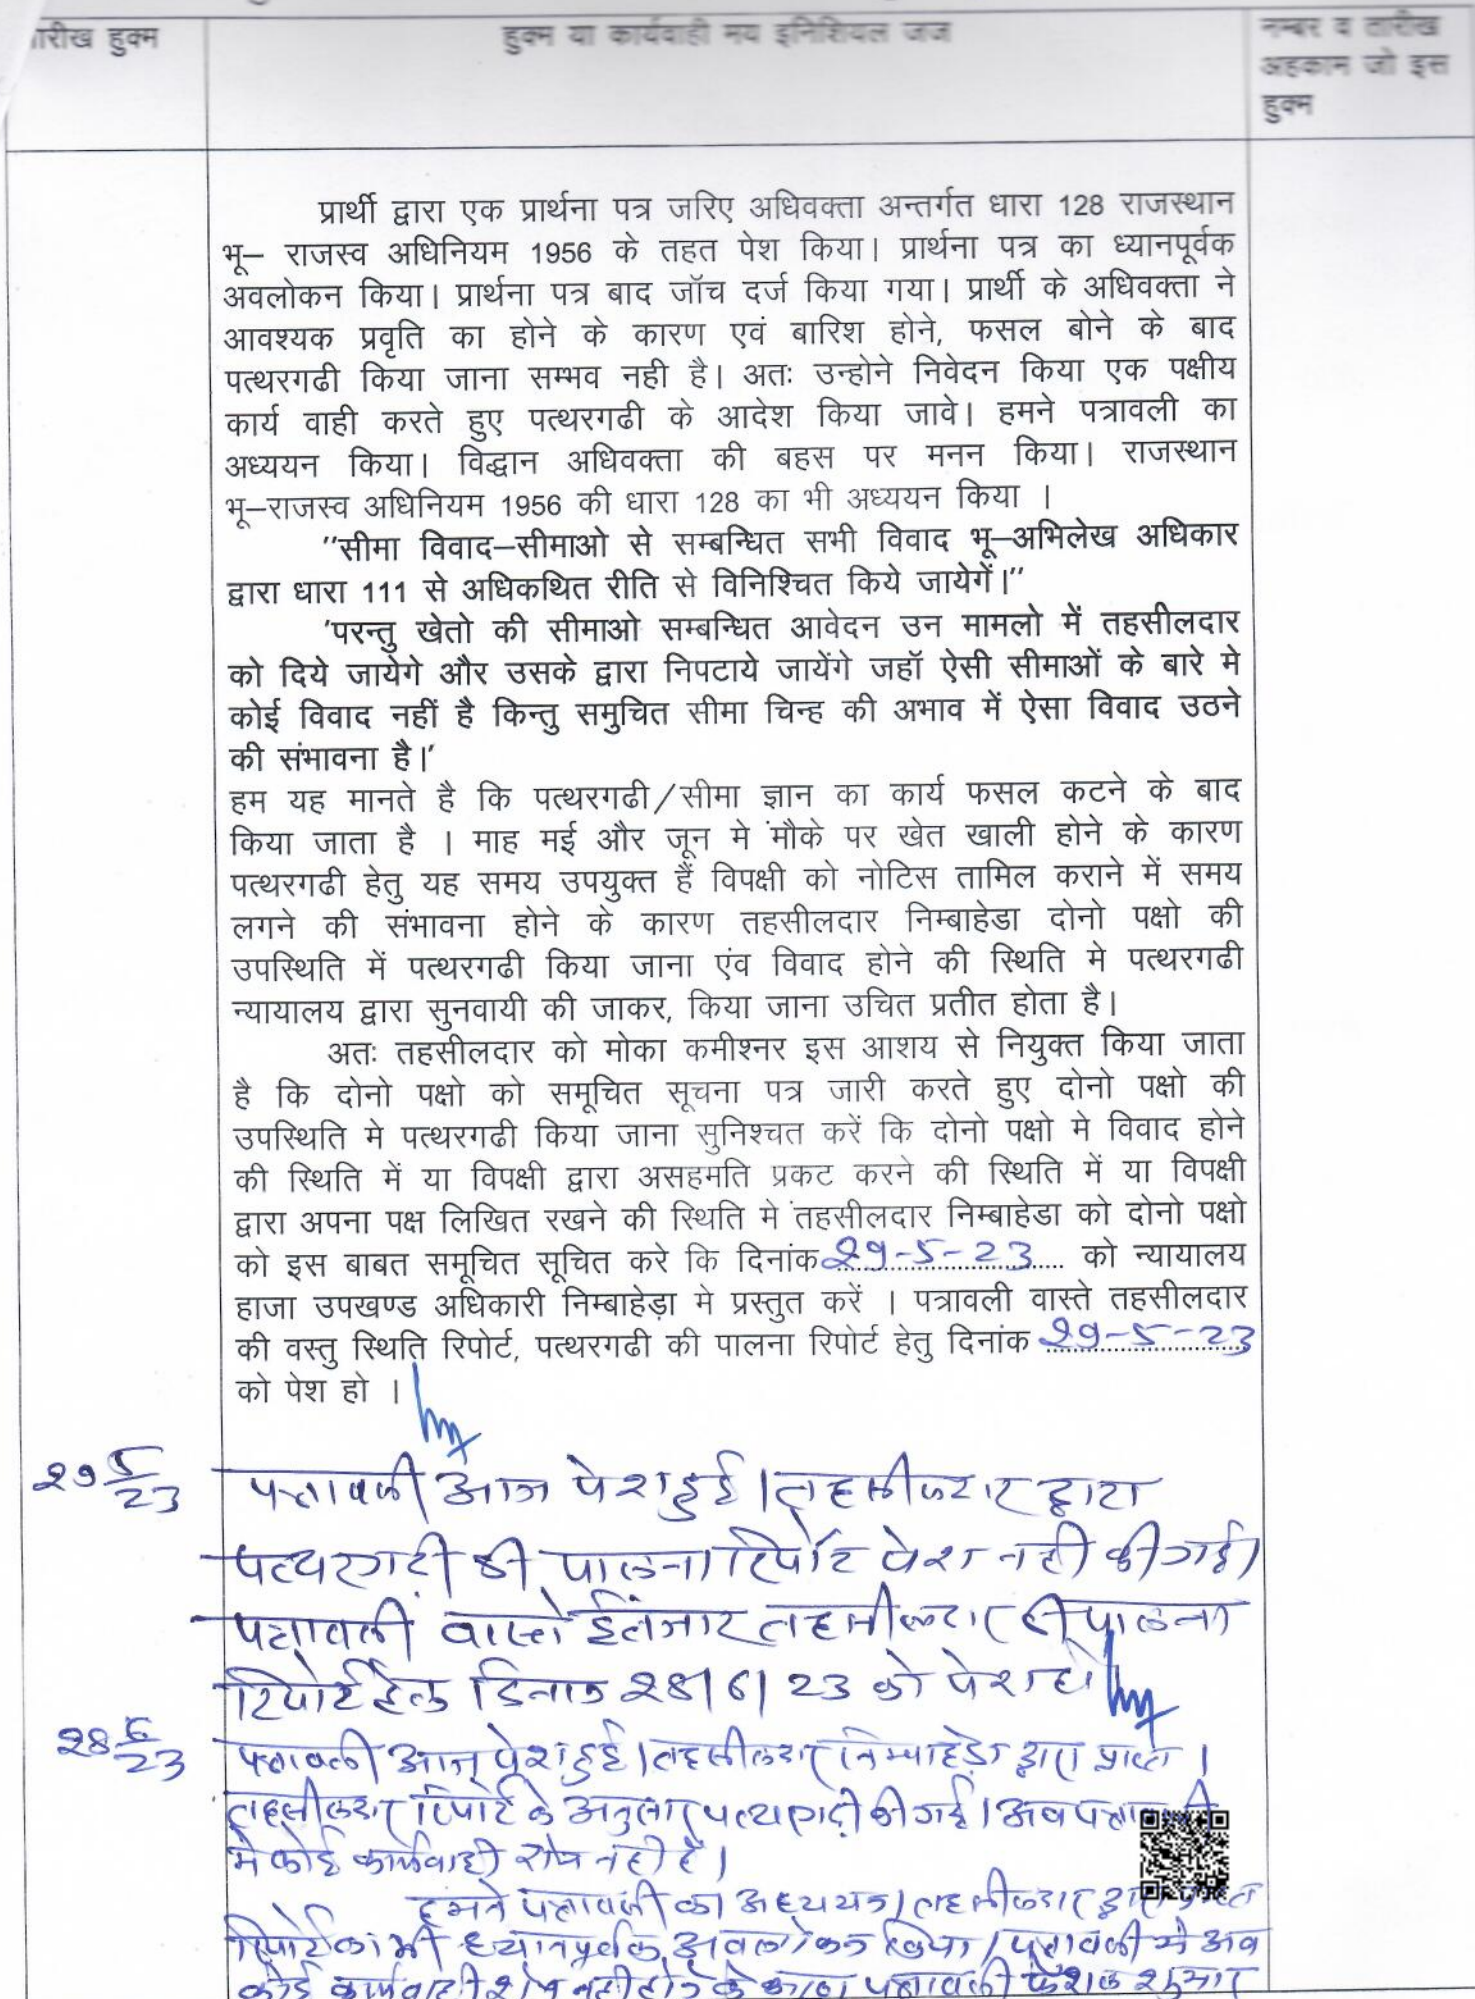 तारीख हुक्म
हुक्म या कार्यवाही मय इनिशियल जज
नम्बर व तारीख
अहकाम जो इस
हुक्म
प्रार्थी द्वारा एक प्रार्थना पत्र जरिए अधिवक्ता अन्तर्गत धारा 128 राजस्थान
भू– राजस्व अधिनियम 1956 के तहत पेश किया। प्रार्थना पत्र का ध्यानपूर्वक
अवलोकन किया। प्रार्थना पत्र बाद जॉच दर्ज किया गया। प्रार्थी के अधिवक्ता ने
आवश्यक प्रवृति का होने के कारण एवं बारिश होने, फसल बोने के बाद
पत्थरगढी किया जाना सम्भव नही है। अतः उन्होने निवेदन किया एक पक्षीय
कार्य वाही करते हुए पत्थरगढी के आदेश किया जावे। हमने पत्रावली का
अध्ययन किया। विद्धान अधिवक्ता की बहस पर मनन किया। राजस्थान
भू–राजस्व अधिनियम 1956 की धारा 128 का भी अध्ययन किया ।
''सीमा विवाद–सीमाओ से सम्बन्धित सभी विवाद भू–अभिलेख अधिकार
द्वारा धारा 111 से अधिकथित रीति से विनिश्चित किये जायेगें।''
'परन्तु खेतो की सीमाओ सम्बन्धित आवेदन उन मामलो में तहसीलदार
को दिये जायेगे और उसके द्वारा निपटाये जायेंगे जहॉ ऐसी सीमाओं के बारे मे
कोई विवाद नहीं है किन्तु समुचित सीमा चिन्ह की अभाव में ऐसा विवाद उठने
की संभावना है।'
हम यह मानते है कि पत्थरगढी/सीमा ज्ञान का कार्य फसल कटने के बाद
किया जाता है । माह मई और जून मे मौके पर खेत खाली होने के कारण
पत्थरगढी हेतु यह समय उपयुक्त हैं विपक्षी को नोटिस तामिल कराने में समय
लगने की संभावना होने के कारण तहसीलदार निम्बाहेडा दोनो पक्षो की
उपस्थिति में पत्थरगढी किया जाना एंव विवाद होने की स्थिति मे पत्थरगढी
न्यायालय द्वारा सुनवायी की जाकर, किया जाना उचित प्रतीत होता है।
अतः तहसीलदार को मोका कमीश्नर इस आशय से नियुक्त किया जाता
है कि दोनो पक्षो को समूचित सूचना पत्र जारी करते हुए दोनो पक्षो की
उपस्थिति मे पत्थरगढी किया जाना सुनिश्चत करें कि दोनो पक्षो मे विवाद होने
की स्थिति में या विपक्षी द्वारा असहमति प्रकट करने की स्थिति में या विपक्षी
द्वारा अपना पक्ष लिखित रखने की स्थिति मे तहसीलदार निम्बाहेडा को दोनो पक्षो
को इस बाबत समूचित सूचित करे कि दिनांक 29-5-23 को न्यायालय
हाजा उपखण्ड अधिकारी निम्बाहेड़ा मे प्रस्तुत करें । पत्रावली वास्ते तहसीलदार
की वस्तु स्थिति रिपोर्ट, पत्थरगढी की पालना रिपोर्ट हेतु दिनांक 29-5-23
को पेश हो ।
29 5/23 पत्रावली आज पेश हुई। तहसीलदार द्वारा
पत्थरगढी की पालना रिपोर्ट पेश नही की गई।
पत्रावली वास्ते ईतंजार तहसीलदार की पालना
रिपोर्ट हेतु दिनांक 28/6/23 को पेश हो।
28 6/23 पत्रावली आज पेश हुई। तहसीलदार निम्बाहेड़ा द्वारा प्राप्त।
तहसीलदार रिपोर्ट के अनुसार पत्थरगढी की गई। अब पत्रावली
मे कोई कार्यवाही शेष नही है।
हमने पत्रावली का अध्ययन। तहसीलदार द्वारा
रिपोर्ट का भी ध्यानपूर्वक अवलोकन किया। पत्रावली मे अब
कोई कार्यवाही शेष नही होने के कारण पत्रावली फैशल शुमार